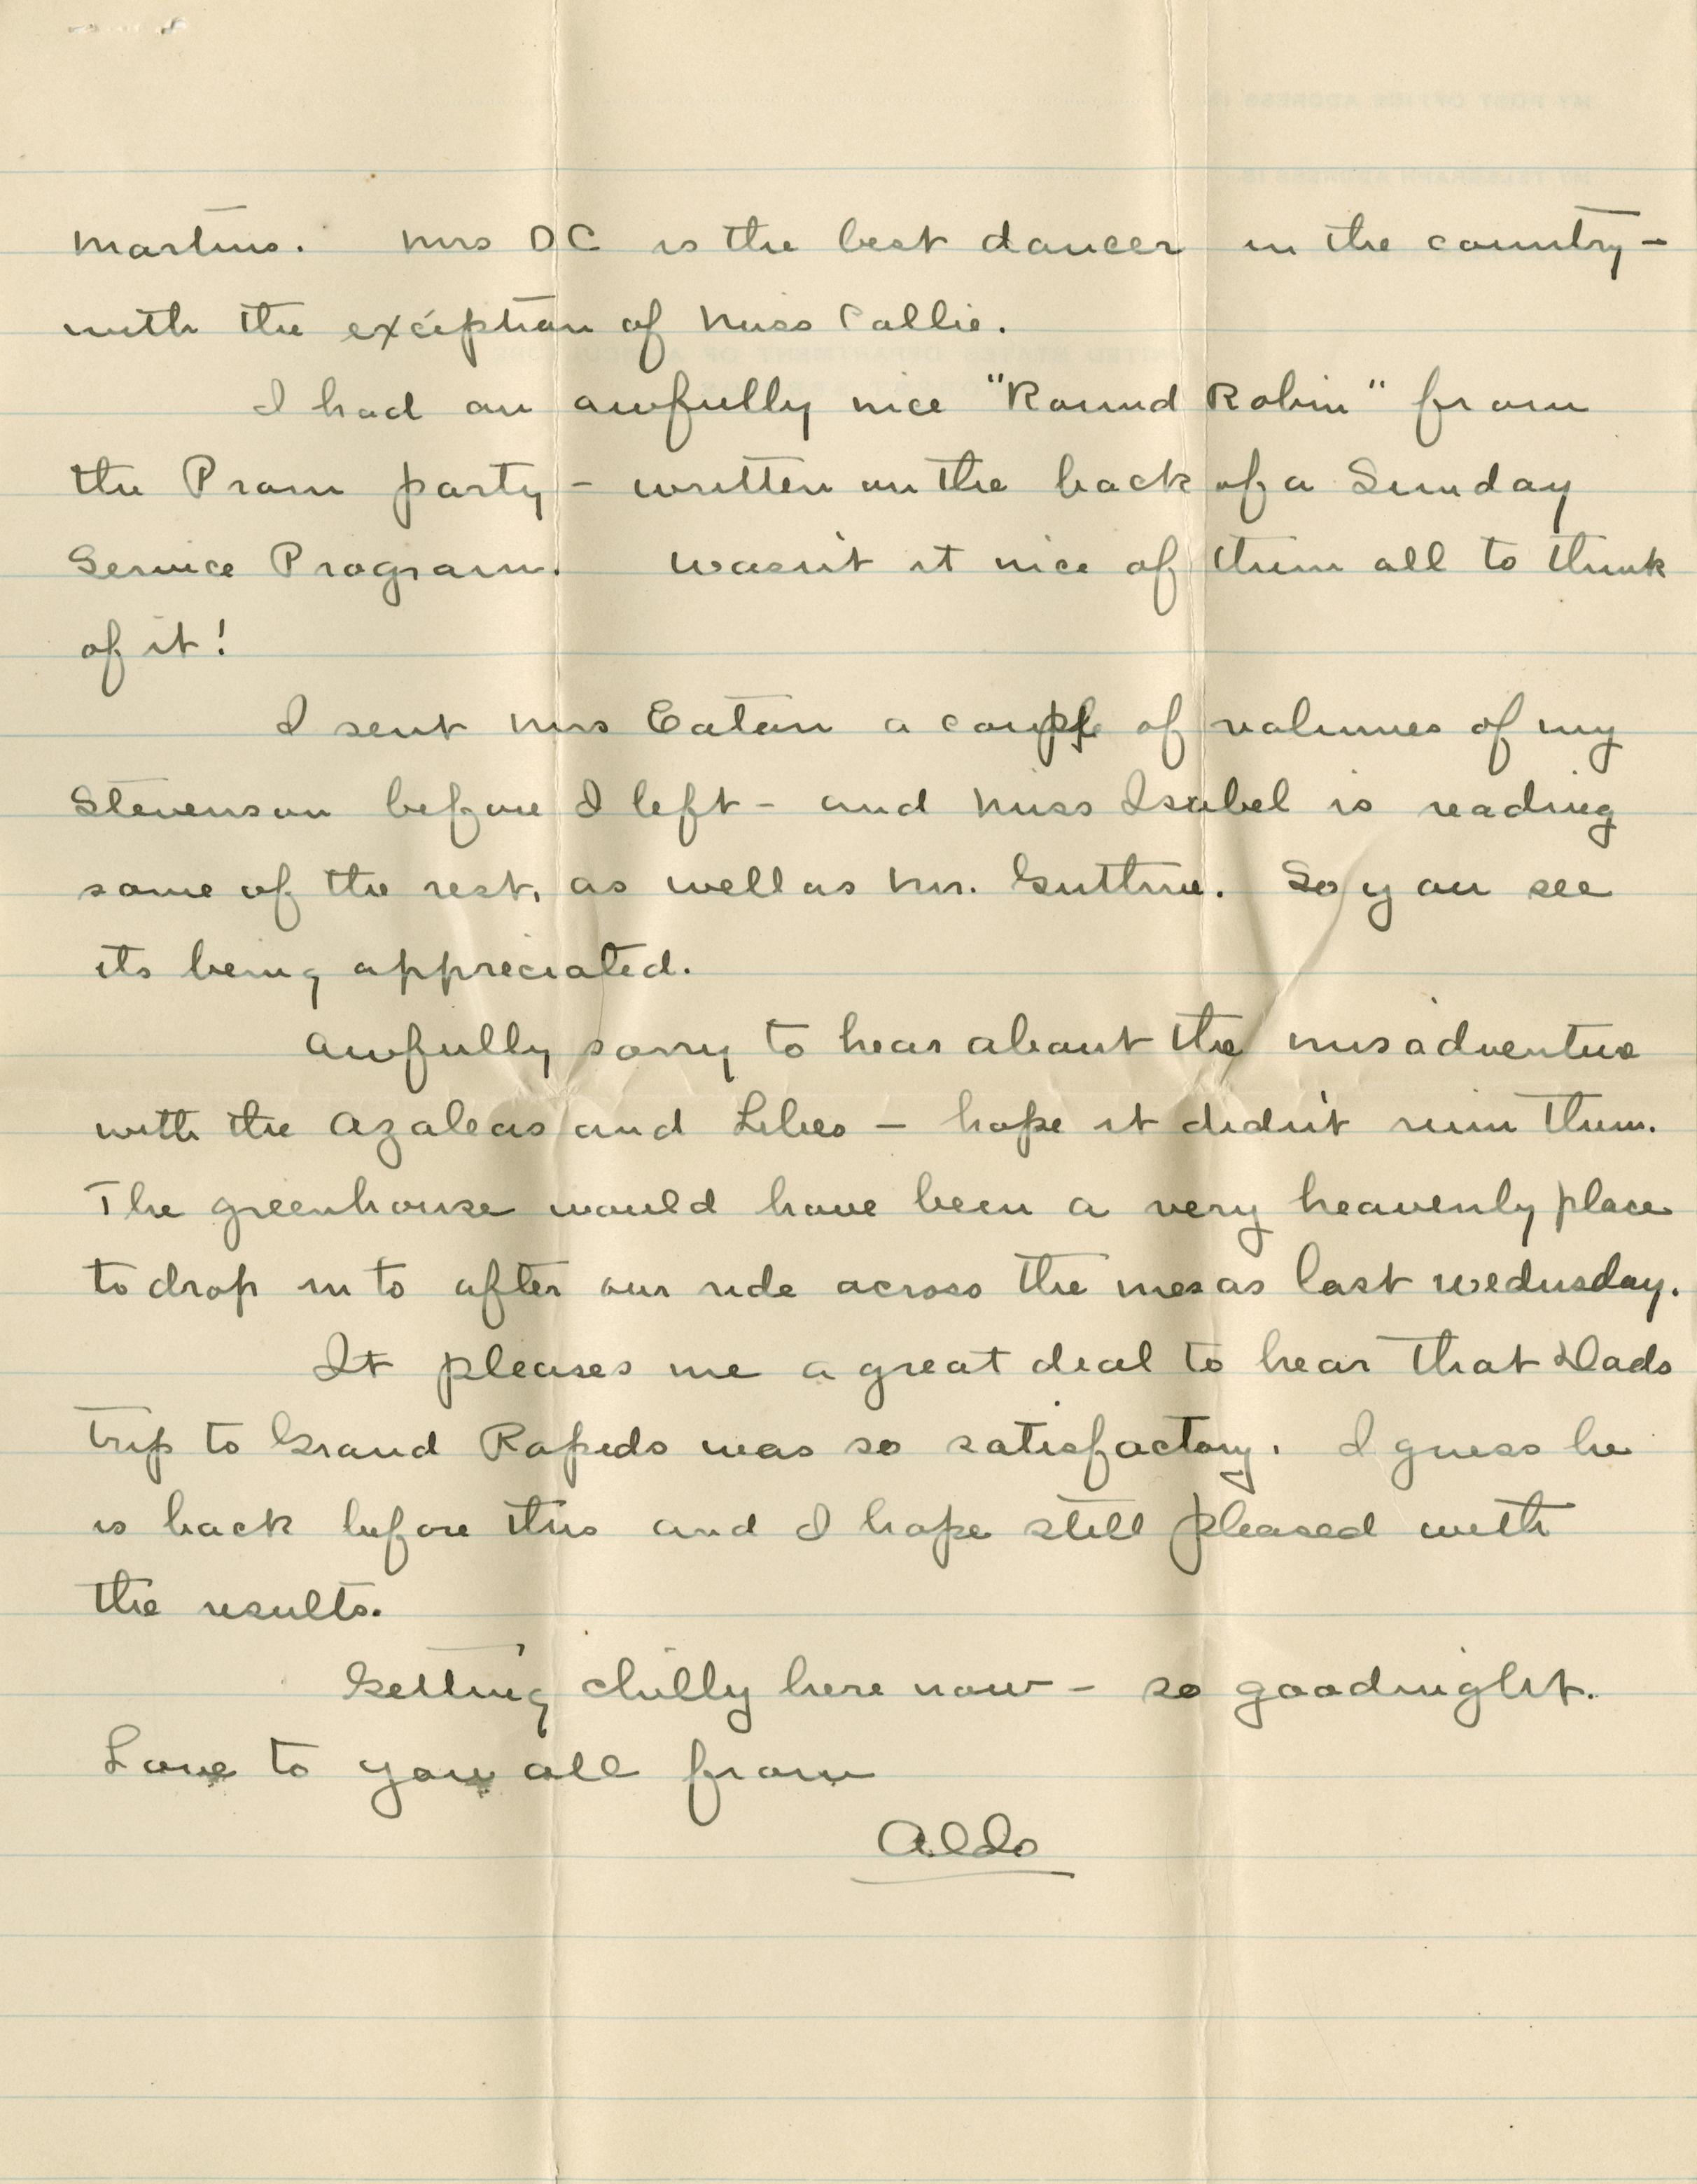 Martins. Mrs DC is the best dancer in the country –
with the exception of Miss Callie.
I had an awfully nice "Round Robin" from
the Prom party – written on the back of a Sunday
Service Program. Wasn't it nice of them all to think
of it!
I sent Mrs Eaton a couple of volumes of my
Stevenson before I left – and Miss Isabel is reading
some of the rest, as well as Mr. Guthrie. So you see
its being appreciated.
Awfully sorry to hear about the misadventure
with the Azaleas and Lilies – hope it didn't ruin them.
The greenhouse would have been a very heavenly place
to drop in to after our ride across the mesas last Wednesday.
It pleases me a great deal to hear that Dads
trip to Grand Rapids was so satisfactory. I guess he
is back before this and I hope still pleased with
the results.
Getting chilly here now – so goodnight.
Love to you all from
Aldo